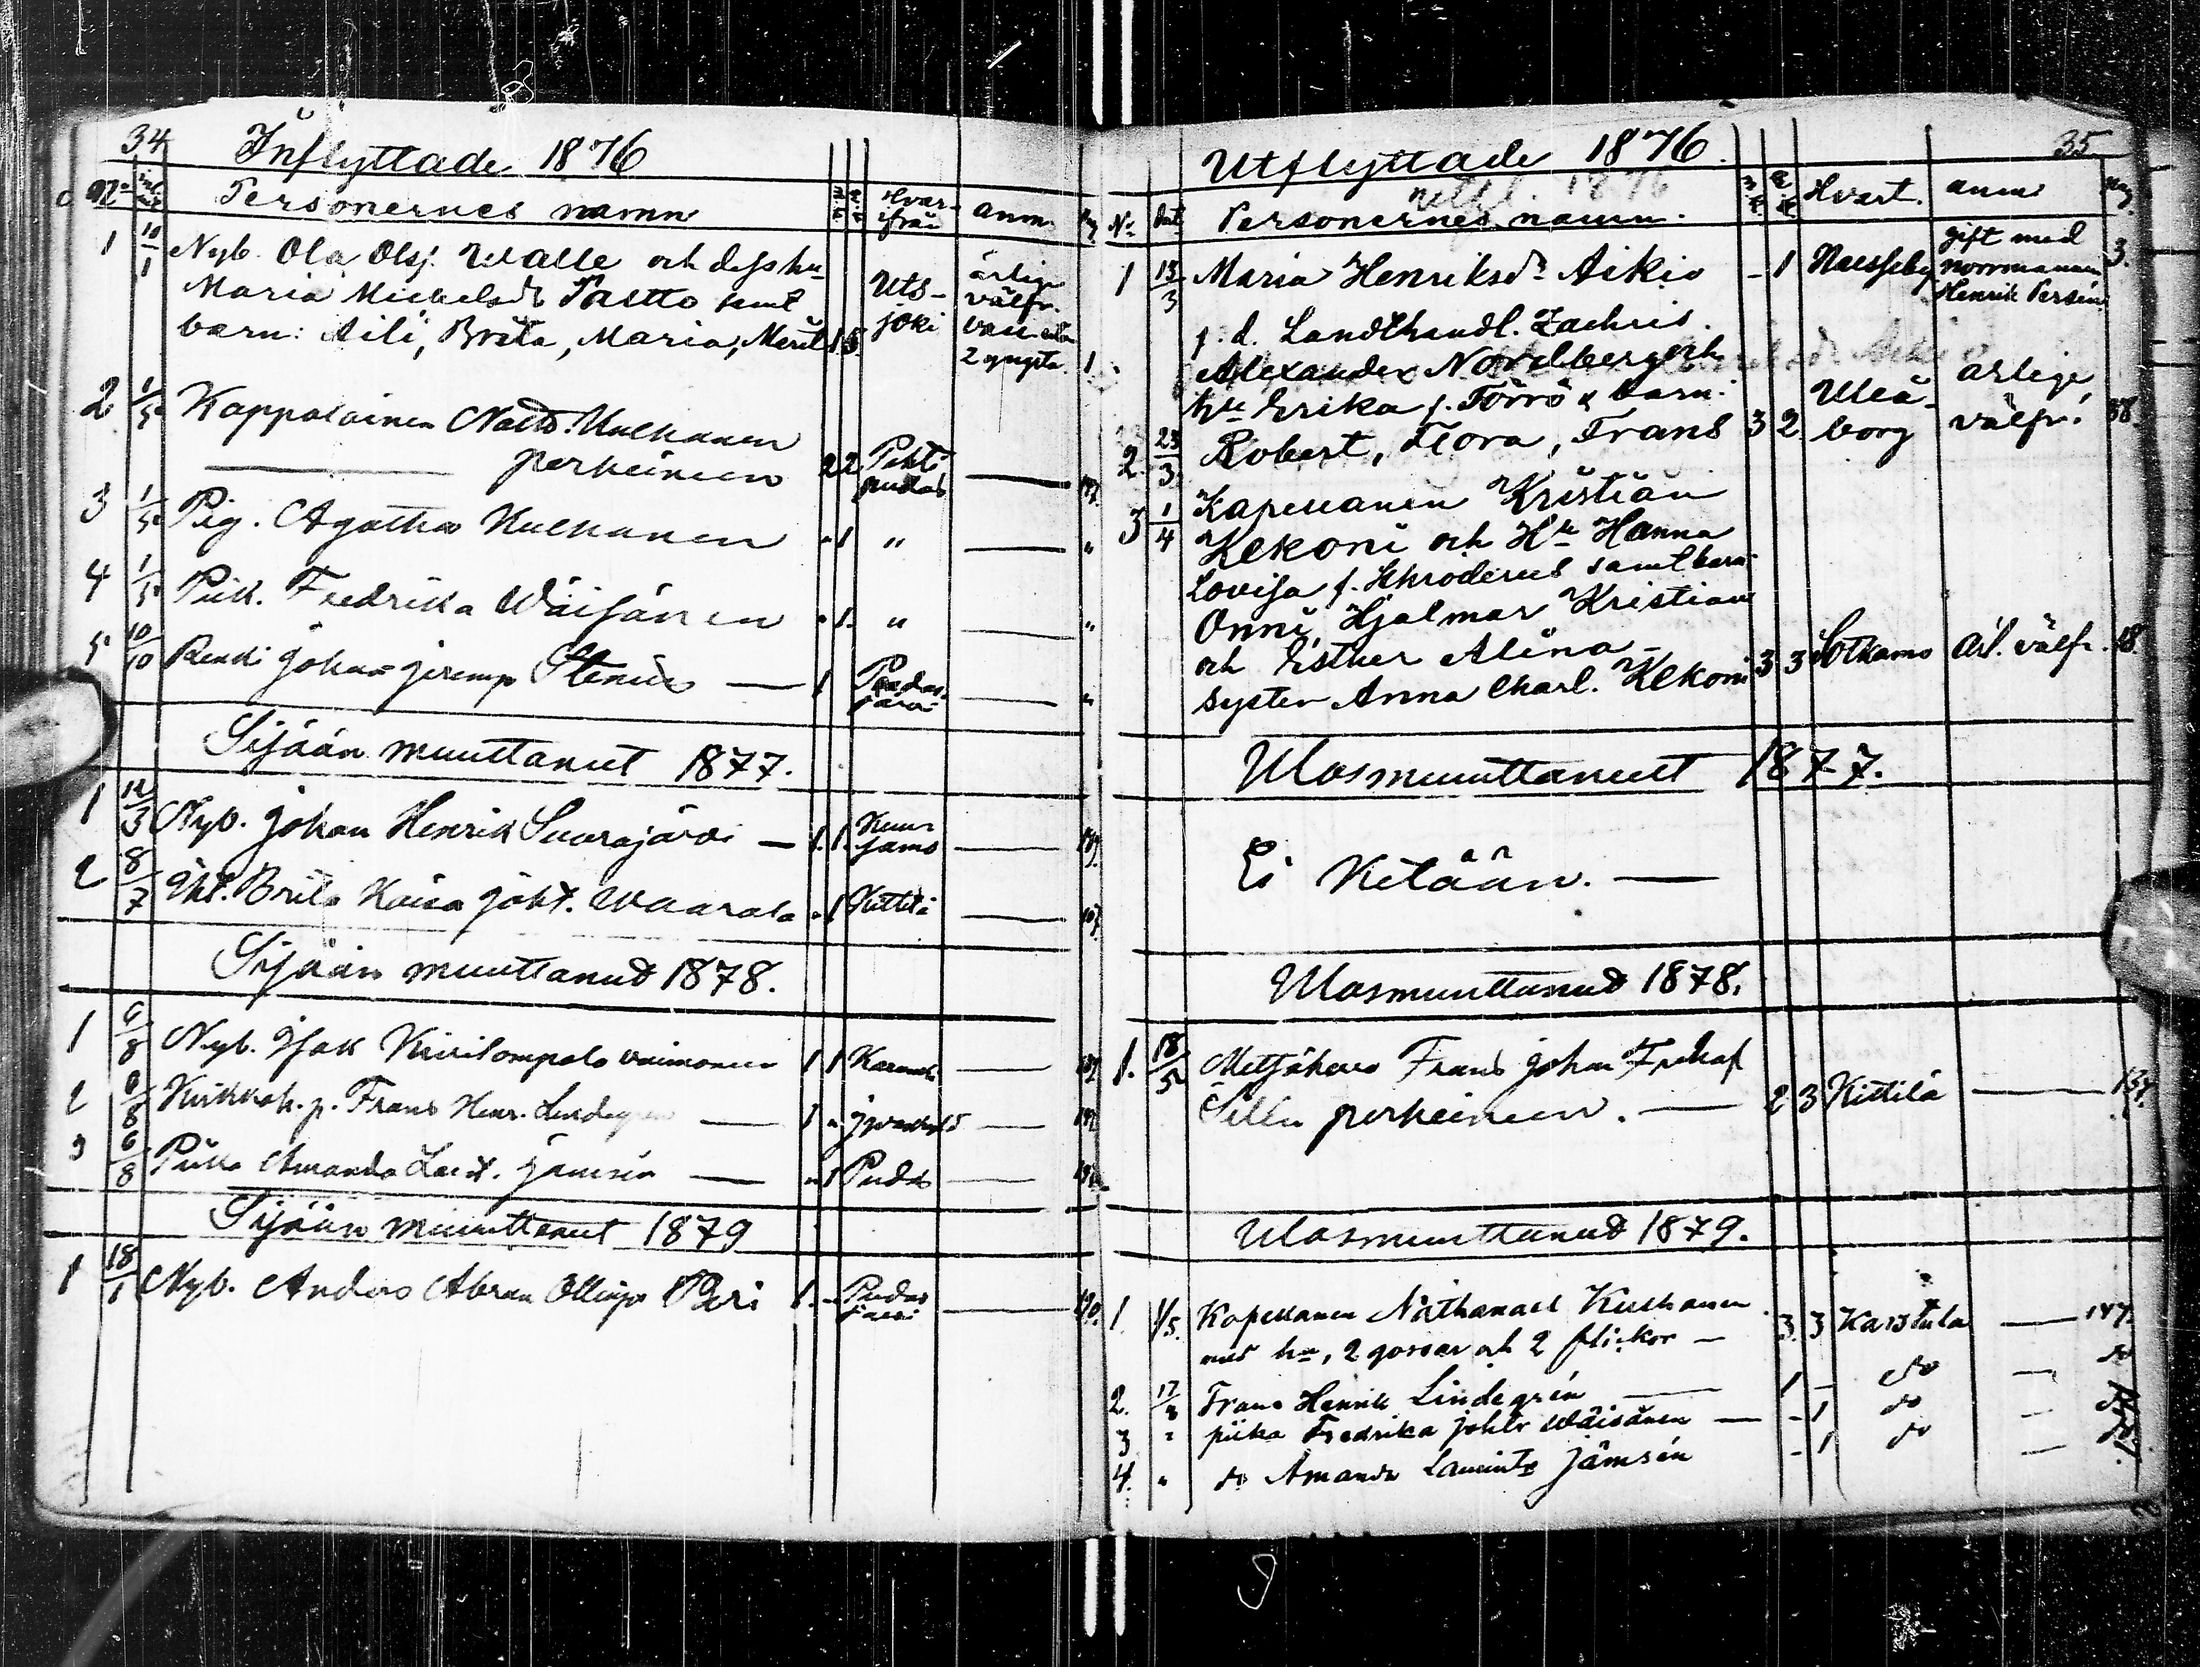 34
Inflyttade 1876
No
Personernes namn
m.k. q.k. Hvarifrån anm. pag
1 10/1 Nyb. Ola Olsj. Walle och dess hu
Maria Michelsdr Pastto samt
barn: Aili, Brita, Maria, Merit 1 5 Utsjoki ärlige välfr. 1
2 1/5 Kappalainen Nath. Kulhanen
perheineen 2 2 147
3 1/5 Pig. Agatha Kulhanen - 1 " — "
4 1/5 Piik. Fredrika Wäisänen - 1. " — "
5 10/10 Renki Johan Jeremp Stenius — 1 Pudasjärvi — "
Sijään muuttanut 1877.
1 12/3 Nyb. Johan Henrik Suorajärvi — 1. 1. Kuusjamo —
2 8/7 Brita Kaisa Joht. Waarala - 1 Kittilä — 107
Sijään muuttanud 1878.
1 6/8 Nyb. Isak Kivilompolo vaimoneen 1 1 —
2 6/8 Frans Henr. Lindegren — 1 " —
3 6/8 Piika Amanda Laur.t. Jämsén — " 1 Pudas —
Sijään muuttanut 1879
1 18/1 Nyb. Anders Abram Ollinp. Peri 1. - Pudasjärvi — 190.
35
Utflyttade 1876.
utfl. 1876
No dat Personernes namn. m.k. q.k. Hvart. anm pag.
1 13/3 Maria Henriksdr Aikio - 1 Naesseby gift med
norrmannen
Henrik Persen. 3.
f.d. Landthandl. Zachris
Alexander Nordberg och
hu Erika f. Törrö & barn:
2. 23/3 Robert, Flora, Frans 3 2 Uleåborg ärlige välfr. 38.
3 1/4 Kapellanen Kristian
Kekoni och Hu Hanna
Lovisa f. Schroderus samt barn
Onni, Hjalmar Kristian
och Esther Alina -
syster Anna Charl. Kekoni 3 3 Sotkamo ärl. välfr. 18.
Ulosmuuttanut 1877.
Ei Ketään. —
Ulosmuuttanud 1878.
1. 18/5 Metsäherra Frans Johan
perheineen. — 2 3 Kittilä — 134.
Ulosmuuttanud 1879.
1. 1/5. Kapellanen Nathanael Kulhanen
med hu, 2 gossar och 2 flickor — 3. 3 Karstula — 147.
2. 17/8 Frans Henrik Lindegrén — 1 - do — do
3 " piika Fredrika Johtr Wäisänen — - 1 do — do
4. " do Amanda Laurintr Jämsén - 1 do —